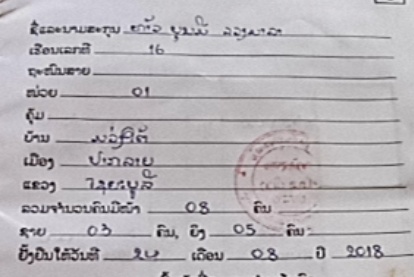 ຊື່ແລະນາມສະກຸນ ທ້າວ ບຸນມີ
ເຮືອນເລກທີ 16
ຖະໜົນສາຍ
ໜ່ວຍ 01
ຄຸ້ມ
ບ້ານ
ເມືອງ ປາກລາຍ
ແຂວງ ໄຊຍະບູລີ
ລວມຈຳນວນຄົນມີໜ້າ 08 ຄົນ
ຊາຍ 03 ຄົນ, ຍິງ 05 ຄົນ
ຢັ້ງຢືນໃຫ້ວັນທີ 24 ເດືອນ 08 ປີ 2018